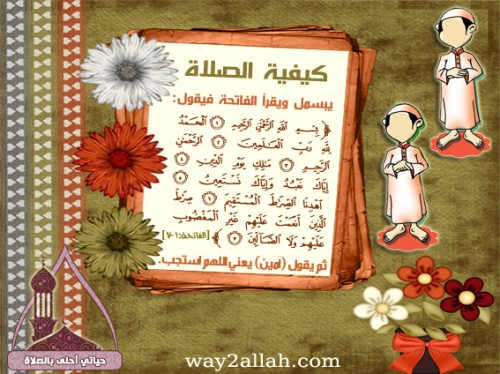 كيفية الصلاة
يبسمل ويقرأ الفاتحة فيقول:
﴿ بِسْمِ اللَّهِ الرَّحْمَٰنِ الرَّحِيمِ ۝١ الْحَمْدُ
لِلَّهِ رَبِّ الْعَالَمِينَ ۝٢ الرَّحْمَٰنِ
الرَّحِيمِ ۝٣ مَالِكِ يَوْمِ الدِّينِ ۝٤
إِيَّاكَ نَعْبُدُ وَإِيَّاكَ نَسْتَعِينُ ۝٥
اهْدِنَا الصِّرَاطَ الْمُسْتَقِيمَ ۝٦ صِرَاطَ
الَّذِينَ أَنْعَمْتَ عَلَيْهِمْ غَيْرِ الْمَغْضُوبِ
عَلَيْهِمْ وَلَا الضَّالِّينَ ۝٧ ﴾ [الفاتحة:١-٧]
ثم يقول (آمين) يعني اللهم استجب.
حياتي أحلى بالصلاة
way2allah.com